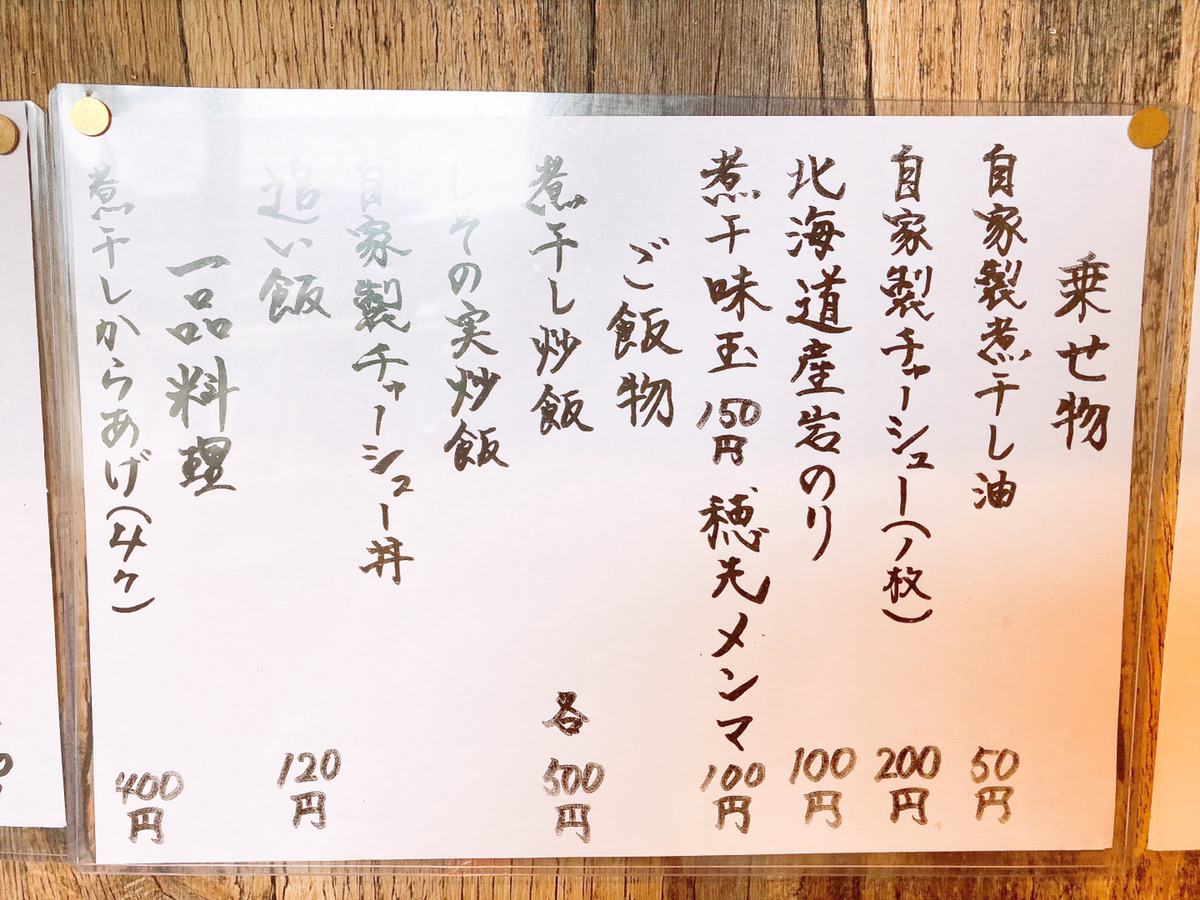 乗せ物
自家製煮干し油 50円
自家製チャーシュー(1枚) 200円
北海道産岩のり 100円
煮干味玉 150円 穂先メンマ 100円
ご飯物
煮干し炒飯 各500円
しその実炒飯
自家製チャーシュー丼
追い飯 120円
一品料理
煮干しからあげ(4ケ) 400円